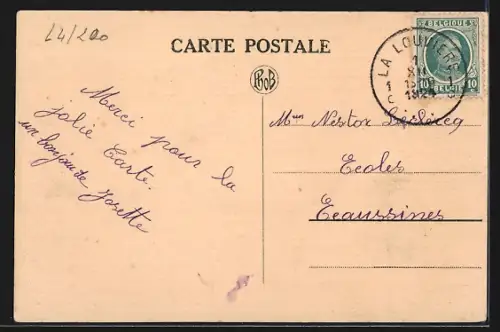 L4/200
CARTE POSTALE
BELGIQUE
10 10
BELGIË
LA LOUVIÈRE
1 1
Merci pour la
jolie Carte.
un bonjour de Josette
Mme Nestor Leclercq
Ecoles
Ecaussines